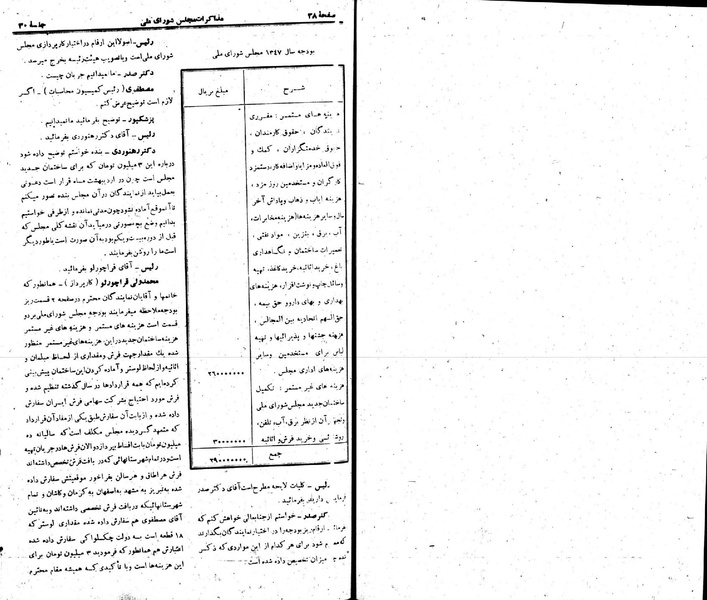 صفحهٔ ۲۸
مذاکرات مجلس شورای ملی
جلسهٔ ۳۰
بودجه سال ۱۳۴۷ مجلس شورای ملی
شرح
مبلغ بریال
هزینه های مستمر : مقرری
نمایندگان ، حقوق کارمندان ،
حقوق خدمتگزاران ، کمک و
فوق العاده و مزایا و اضافه کار، دستمزد
کارگران و مستخدمین روز مزد،
هزینه ایاب و ذهاب و پاداش آخر
سال، سایر هزینه ها (هزینه مخابرات،
آب، برق، بنزین ، مواد نفتی،
تعمیرات ساختمان و نگاهداری
باغ، خرید اثاثیه، خرید کاغذ، تهیه
وسائل چاپ و نوشت افزار، هزینه های
بهداری و بهای دارو حق بیمه ،
حق السهم اتحادیه بین المجالس ،
هزینه جشنها و پذیرائیها و تهیه
لباس برای مستخدمین وسایر
هزینه های اداری مجلس .
۲۶۰۰۰۰۰۰۰
هزینه های غیر مستمر : تکمیل
ساختمان جدید مجلس شورای ملی
وتجهیز آن از نظر برق، آب، تلفن،
روشنائی و خرید فرش و اثاثیه
۳۰۰۰۰۰۰۰
جمع
۲۹۰۰۰۰۰۰۰
رئیس - کلیات لایحه مطرح است آقای دکتر صدر
فرمایشی دارید بفرمائید.
دکتر صدر - خواستم از جنابعالی خواهش کنم که
ارقام ریز بودجه را در اختیار نمایندگان بگذارند
که شود برای هر کدام از این مواردی که ذکر
شده چه میزان تخصیص داده شده است .
رئیس - اصولا این ارقام در اختیار کارپردازی مجلس
شورای ملی است و باتصویب هیئت رئیسه بخرج میرسد .
دکتر صدر - ما میدانیم جریان چیست .
مصطفوی (رئیس کمیسیون محاسبات) - اگر
لازم است توضیح عرض کنم .
پزشکپور - توضیح بفرمائید ما نمیدانیم .
رئیس - آقای دکتر رهنوردی بفرمائید.
دکتر رهنوردی - بنده خواستم توضیح داده شود
درباره این ۳ میلیون تومان که برای ساختمان جدید
مجلس است چون در اردیبهشت ماه قرار است دعوتی
بعمل بیاید از نمایندگان در آن مجلس بنده تصور میکنم
تا آنموقع آماده نشود چون مدتی نمانده و از طرفی خواستیم
بدانیم وضع بچه صورتی در میآید آن نقشه کلی مجلس که
قبل از دوره بیست ویکم بود به آن صورت است یا طور دیگر
است ما را روشن بفرمایند .
رئیس - آقای قراچورلو بفرمائید .
محمدولی قراچورلو (کارپرداز) - همانطور که
خانمها و آقایان نمایندگان محترم در صفحه ۲ قسمت ریز
بودجه ملاحظه میفرمایند بودجه مجلس شورای ملی بر دو
قسمت است هزینه های مستمر و هزینه های غیر مستمر
هزینه ساختمان جدید در این هزینه های غیر مستمر منظور
شده یک مقدار جهت فرش ومقداری از لحاظ مبلمان و
اثاثیه و از لحاظ لوستر و آماده کردن این ساختمان پیش بینی
کرده ایم که همه قراردادها در سال گذشته تنظیم شده و
فرش مورد احتیاج بشرکت سهامی فرش ایران سفارش
داده شده و از بابت آن سفارش طبق یکی از مفاد آن قرارداد
که متعهد گردیده مجلس مکلف است که سالیانه ده
میلیون تومان بابت اقساط بپردازد و الان فرش ها در جریان تهیه
است و در تمام شهرستانهائی که در بافت فرش تخصص داشته اند
فرش هر اطاق و هر سالن بفراخور موقعیتش سفارش داده
شده به تبریز به مشهد به اصفهان به کرمان و کاشان و تمام
شهرستانهائیکه در بافت فرش تخصصی داشته اند و به نائین
آقای مصطفوی هم سفارش داده شده مقداری لوستر که
۱۸ قطعه است به دولت چکسلواکی سفارش داده شده
اعتبارش هم همانطور که فرمودید ۳ میلیون تومان برای
این هزینه ها است و با تأکیدی که همیشه مقام محترم